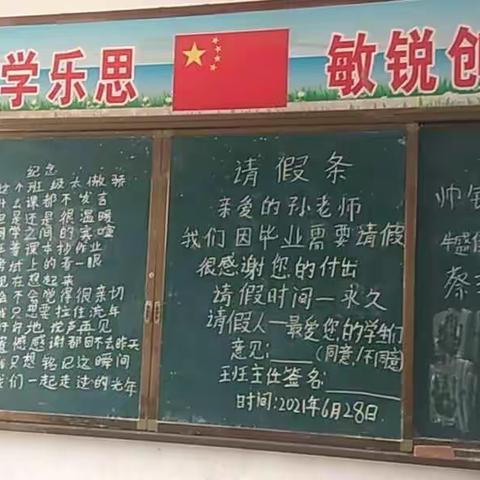 学乐思 敏锐创
纪念
这个班级太傲骄
什么课都不发言
但是还是很温暖
同学之间的寒暄
等着课本抄作业
考试上的看一眼
现在想起来
会不会觉得很亲切
我只想要拉住流年
好好地说声再见
遗憾感谢都回不去昨天
我只想铭记这瞬间
我们一起走过的光年
请假条
亲爱的孙老师
我们因毕业需要请假
很感谢您的付出
请假时间—永久
请假人—最爱您的学生们
意见:____(同意/不同意)
王班主任签名:______
时间:2021年6月28日
帅
蔡